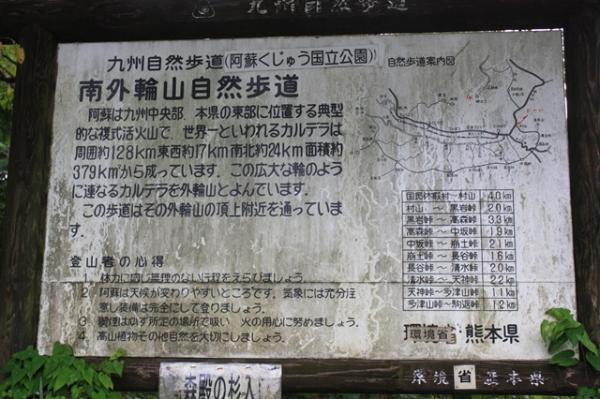 九州自然歩道
九州自然歩道(阿蘇くじゅう国立公園)
南外輪山自然歩道
阿蘇は九州中央部、本県の東部に位置する典型
的な複式活火山で、世界一といわれるカルデラは
周囲約128km東西約17km南北約24km面積約
379km²から成っています。この広大な輪のよう
に連なるカルデラを外輪山とよんでいます。
この歩道はその外輪山の頂上附近を通っていま
す。
登山者の心得
1. 体力に応じ無理のない行程をえらびましょう。
2. 阿蘇は天候が変わりやすいところです。気象には充分注
意し装備は完全にして登りましょう。
3. 喫煙は必ず所定の場所で吸い 火の用心に努めましょう。
4. 高山植物その他自然を大切にしましょう。
自然歩道案内図
国民休暇村〜村山 4.0km
村山〜黒岩峠 2.0km
黒岩峠〜高森峠 3.3km
高森峠〜中坂峠 1.9km
中坂峠〜崩土峠 2.1km
崩土峠〜長谷峠 1.6km
長谷峠〜清水峠 2.0km
清水峠〜天神峠 2.2km
天神峠〜多津山峠 1.1km
多津山峠〜駒返峠 1.2km
環境省・熊本県
環境省 熊本県
森殿の杉入